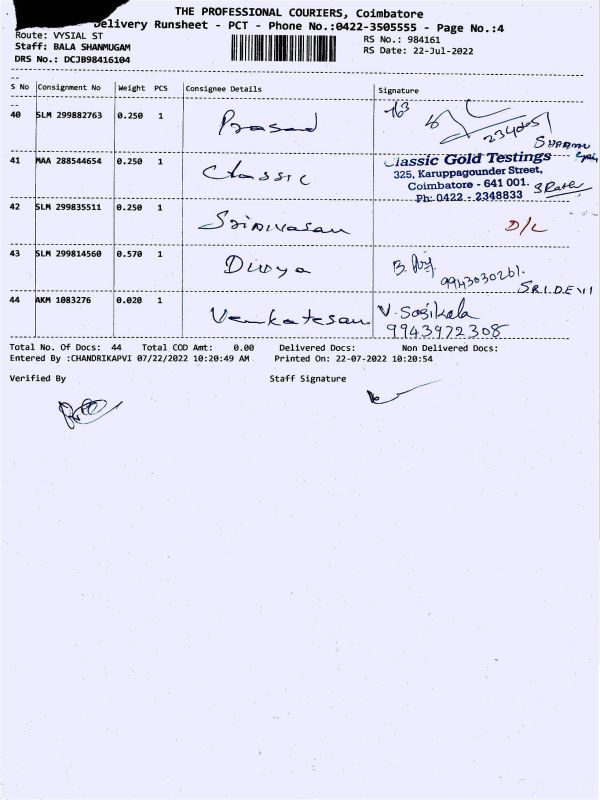 THE PROFESSIONAL COURIERS, Coimbatore
Delivery Runsheet - PCT - Phone No.:0422-3505555 - Page No.:4
Route: VYSIAL ST
RS No.: 984161
Staff: BALA SHANMUGAM
RS Date: 22-Jul-2022
DRS No.: DCJB98416104
S No Consignment No Weight PCS Consignee Details Signature
40 SLM 299882763 0.250 1 Prasad
41 MAA 288544654 0.250 1 Classic
Classic Gold Testings
325, Karuppagounder Street,
Coimbatore - 641 001.
Ph: 0422 - 2348833
42 SLM 299835511 0.250 1 Srinivasan D/L
43 SLM 299814560 0.570 1 Divya
9943030261.
SRIDEVI
44 AKM 1083276 0.020 1 Venkatesan V. Sasikala
9943972308
Total No. Of Docs: 44 Total COD Amt: 0.00 Delivered Docs: Non Delivered Docs:
Entered By :CHANDRIKAPVI 07/22/2022 10:20:49 AM Printed On: 22-07-2022 10:20:54
Verified By Staff Signature